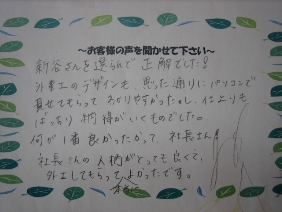 ～お客様の声を聞かせて下さい～
新谷さんを選らんで正解でした!
外
のデザインも、思った通りにパソコンで
見せてもらって わかりやすかったし、仕上りも
ばっちり 納得がいくものでした。
何が1番良かったかって、社長さん!
社長さんの人柄がとっても良くて、
してもらって本当によかったです。